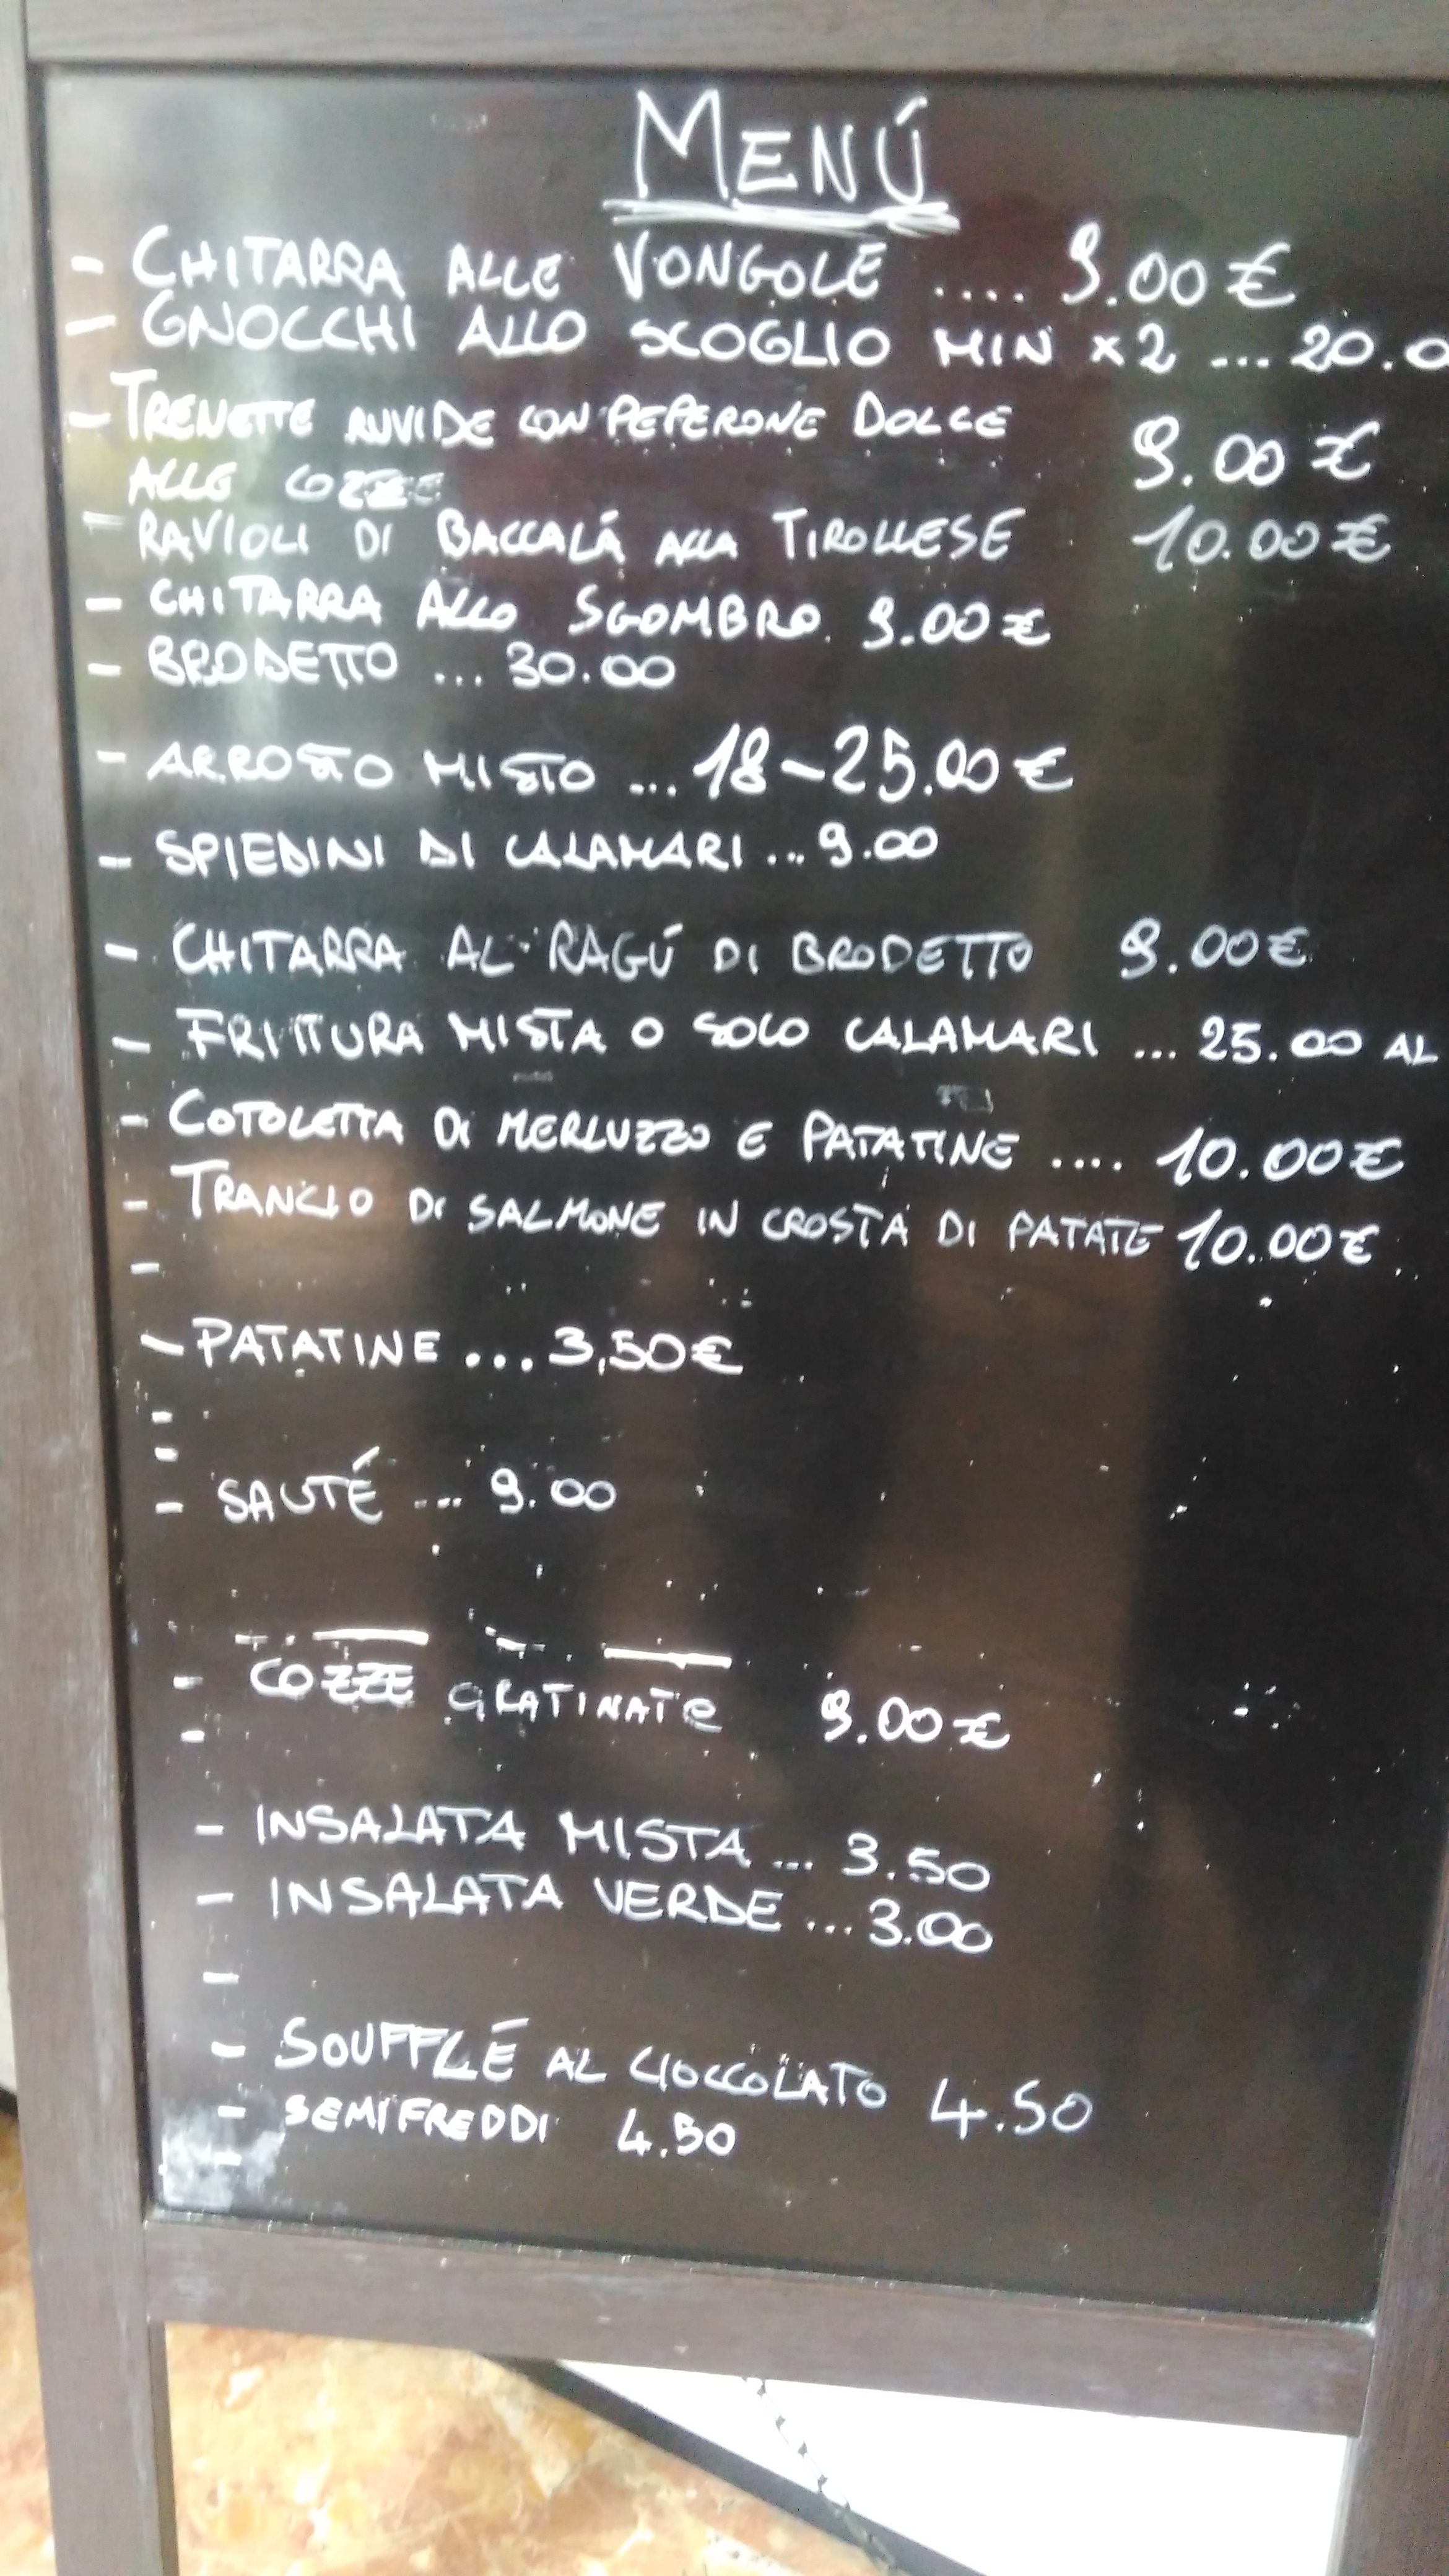 MENÚ
- CHITARRA ALLE VONGOLE .... 9.00 €
- GNOCCHI ALLO SCOGLIO MIN x 2 ... 20.0
- TRENETTE RUVIDE CON PEPERONE DOLCE 9.00 €
ALLE COZZE
- RAVIOLI DI BACCALÁ ALLA TIROLLESE 10.00 €
- CHITARRA ALLO SGOMBRO 9.00 €
- BRODETTO ... 30.00
- ARROSTO MISTO ... 18-25.00 €
- SPIEDINI DI CALAMARI ... 9.00
- CHITARRA AL RAGÚ DI BRODETTO 9.00 €
- FRITTURA MISTA O SOLO CALAMARI ... 25.00 AL
- COTOLETTA DI MERLUZZO E PATATINE .... 10.00 €
- TRANCIO DI SALMONE IN CROSTA DI PATATE 10.00 €
-
- PATATINE ... 3,50 €
-
-
- SAUTÉ ... 9.00
- COZZE GRATINATE 9.00 €
-
- INSALATA MISTA ... 3.50
- INSALATA VERDE ... 3.00
-
- SOUFFLÉ AL CIOCCOLATO 4.50
- SEMIFREDDI 4.50
-